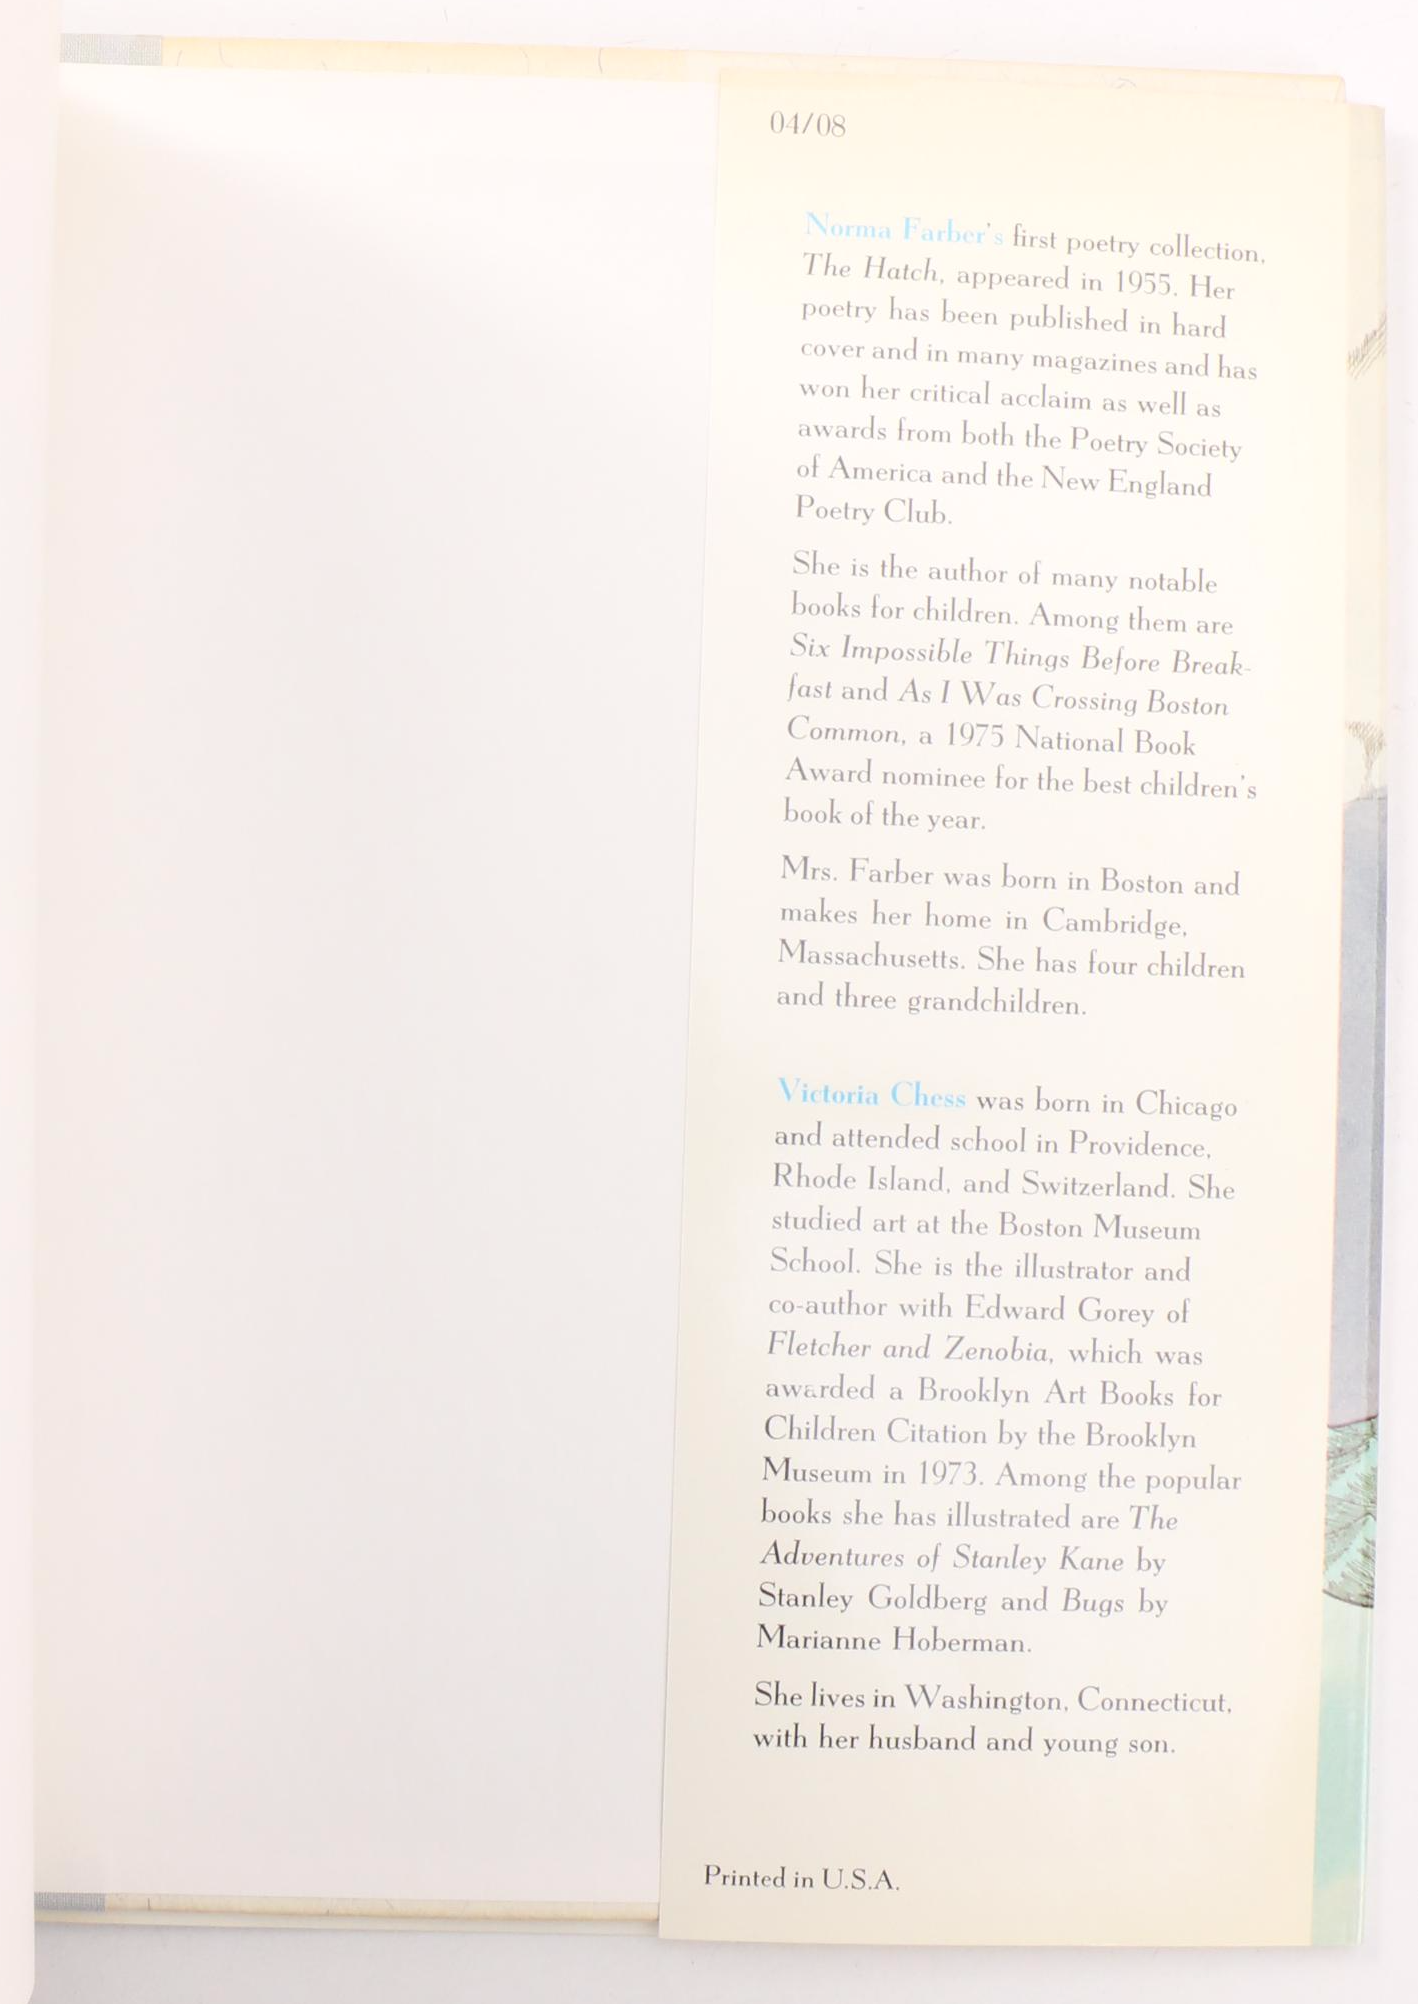 04/08
Norma Farber's first poetry collection,
The Hatch, appeared in 1955. Her
poetry has been published in hard
cover and in many magazines and has
won her critical acclaim as well as
awards from both the Poetry Society
of America and the New England
Poetry Club.
She is the author of many notable
books for children. Among them are
Six Impossible Things Before Break-
fast and As I Was Crossing Boston
Common, a 1975 National Book
Award nominee for the best children's
book of the year.
Mrs. Farber was born in Boston and
makes her home in Cambridge,
Massachusetts. She has four children
and three grandchildren.
Victoria Chess was born in Chicago
and attended school in Providence,
Rhode Island, and Switzerland. She
studied art at the Boston Museum
School. She is the illustrator and
co-author with Edward Gorey of
Fletcher and Zenobia, which was
awarded a Brooklyn Art Books for
Children Citation by the Brooklyn
Museum in 1973. Among the popular
books she has illustrated are The
Adventures of Stanley Kane by
Stanley Goldberg and Bugs by
Marianne Hoberman.
She lives in Washington, Connecticut,
with her husband and young son.
Printed in U.S.A.